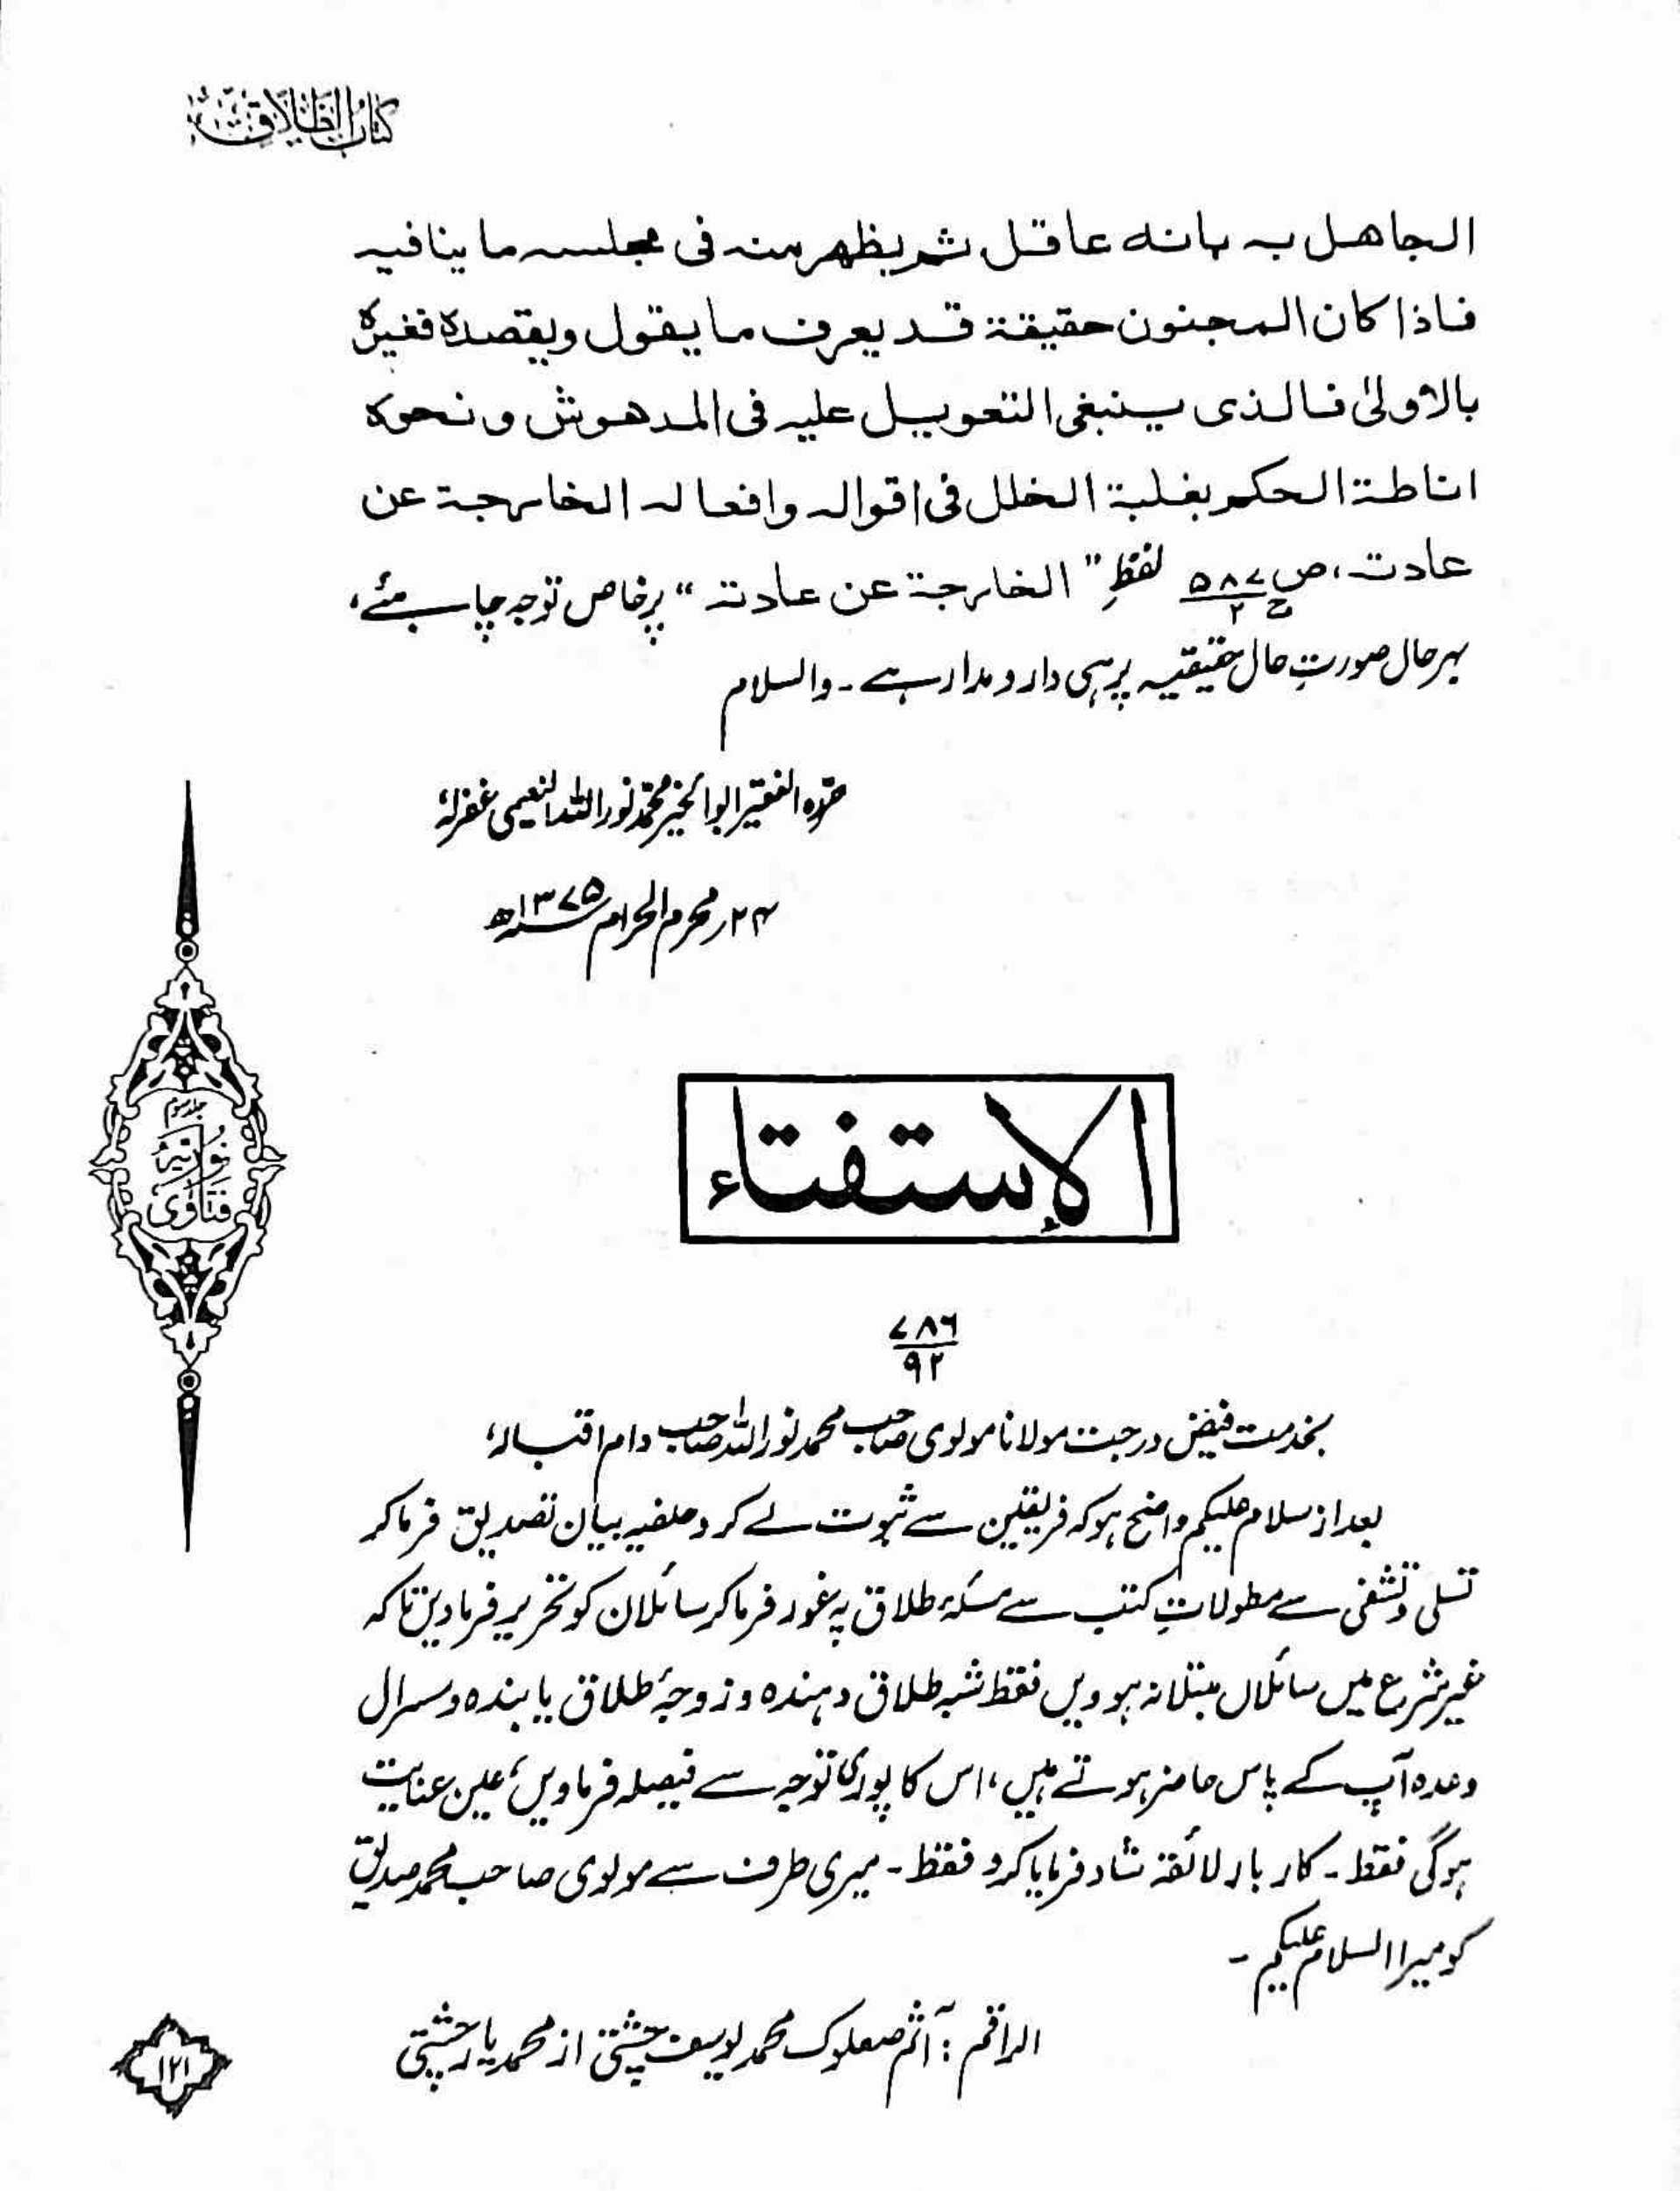 کتاب الطلاق
الجاهل به بانه عاقل ثم يظهر منه فى مجلسه ما ينافيه
فاذا كان المجنون حقيقة قد يعرف ما يقول ويقصده فغيره
بالاولىٰ فالذى ينبغى التعويل عليه فى المدهوش و نحوه
اناطة الحكم بغلبة الخلل فى اقواله وافعاله الخارجة عن
عادته، ص ۵۸۷ ج ۲ لفظِ "الخارجة عن عادته" پر خاص توجہ چاہئے،
بہر حال صورتِ حال حقیقیہ پر ہی دار و مدار ہے۔ والسلام
حررہ الفقیر ابو الخیر محمد نور اللہ النعیمی غفرلہٗ
۲۴ر محرم الحرام ۱۳۷۵ھ
جلد سوم
فتاویٰ نوریہ
الإستفتاء
۷۸۶
۹۲
بخدمت فیض درجت مولانا مولوی صاحب محمد نور اللہ صاحب دام اقبالہٗ
بعد از سلام علیکم واضح ہو کہ فریقین سے ثبوت لے کر و حلفیہ بیان تصدیق فرما کر
تسلی و تشفی سے مطولاتِ کتب سے مسئلہ طلاق پہ غور فرما کر سائلان کو تحریر فرما دیں تاکہ
غیر شرع میں سائلاں مبتلا نہ ہوویں فقط شبہ طلاق دہندہ و زوجۂ طلاق یابندہ و سسرال
وعدہ آپ کے پاس حاضر ہوتے ہیں، اس کا پوری توجہ سے فیصلہ فرماویں، عین عنایت
ہوگی فقط۔ کار بار لائقہ شاد فرمایا کرو فقط۔ میری طرف سے مولوی صاحب محمد صدیق
کو میرا السلام علیکم۔
الراقم: آثم صعلوک محمد یوسف چشتی از محمد یار چشتی
۱۲۱